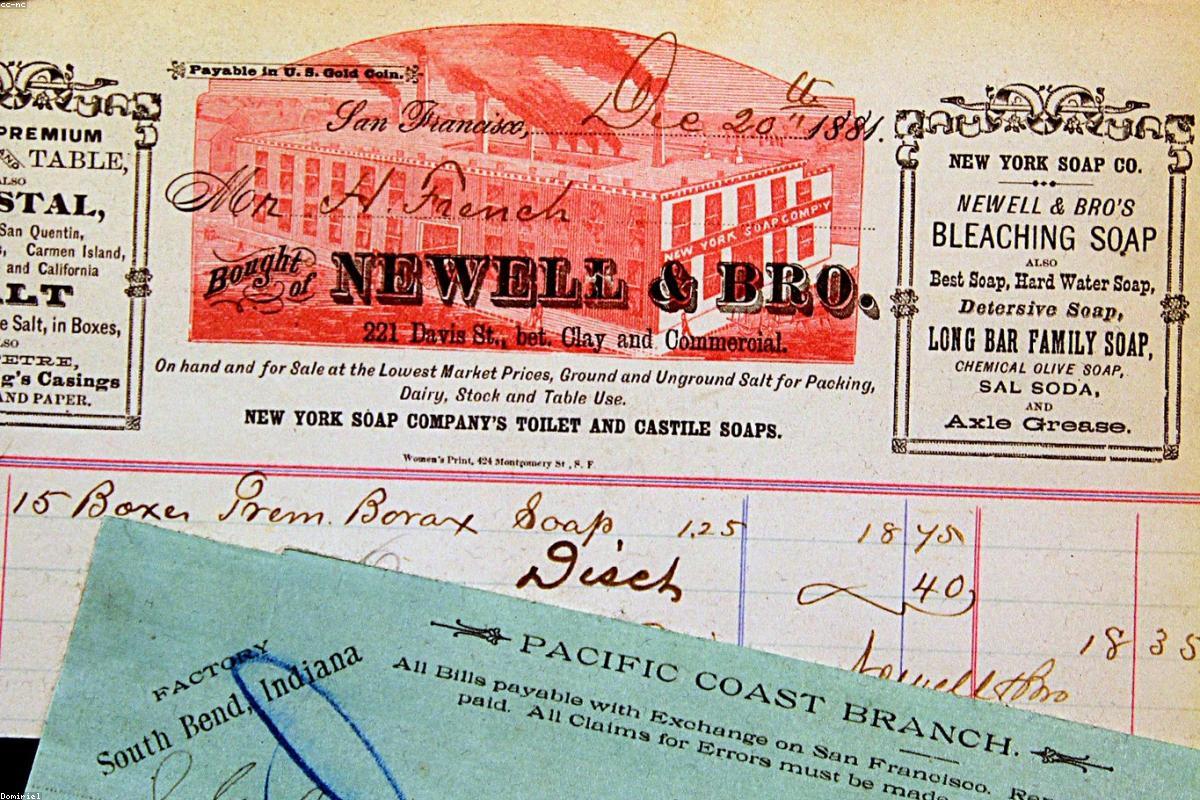 cc-nc
PREMIUM
AND TABLE,
ALSO
STAL,
San Quentin,
Carmen Island,
and California
LT
e Salt, in Boxes,
LSO
PETRE,
g's Casings
AND PAPER.
Payable in U. S. Gold Coin.
San Francisco, Dec 20th 1881.
Mr H French
NEW YORK SOAP COMP'Y
Bought of NEWELL & BRO.
221 Davis St., bet. Clay and Commercial.
On hand and for Sale at the Lowest Market Prices, Ground and Unground Salt for Packing,
Dairy, Stock and Table Use.
NEW YORK SOAP COMPANY'S TOILET AND CASTILE SOAPS.
Women's Print, 424 Montgomery St., S. F.
NEW YORK SOAP CO.
NEWELL & BRO'S
BLEACHING SOAP
ALSO
Best Soap, Hard Water Soap,
Detersive Soap,
LONG BAR FAMILY SOAP,
CHEMICAL OLIVE SOAP,
SAL SODA,
AND
Axle Grease.
15 Boxes Prem. Borax Soap, 1.25 18 75
Disct 40
18 35
Newell & Bro
FACTORY
South Bend, Indiana
PACIFIC COAST BRANCH.
All Bills payable with Exchange on San Francisco.
paid. All Claims for Errors must be made
Domiriel